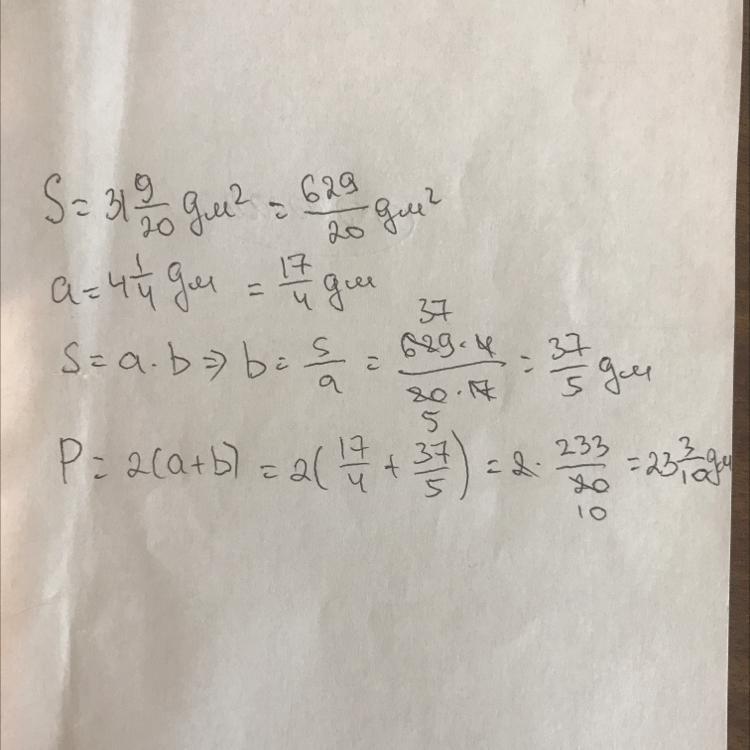 S = 31 9/20 дм² = 629/20 дм²
a = 4 1/4 дм = 17/4 дм
S = a · b ⇒ b = S/a = 629 · 4 / 20 · 17 = 37/5 дм
37
5
P = 2(a+b) = 2(17/4 + 37/5) = 2 · 233/20 = 23 3/10 дм
10